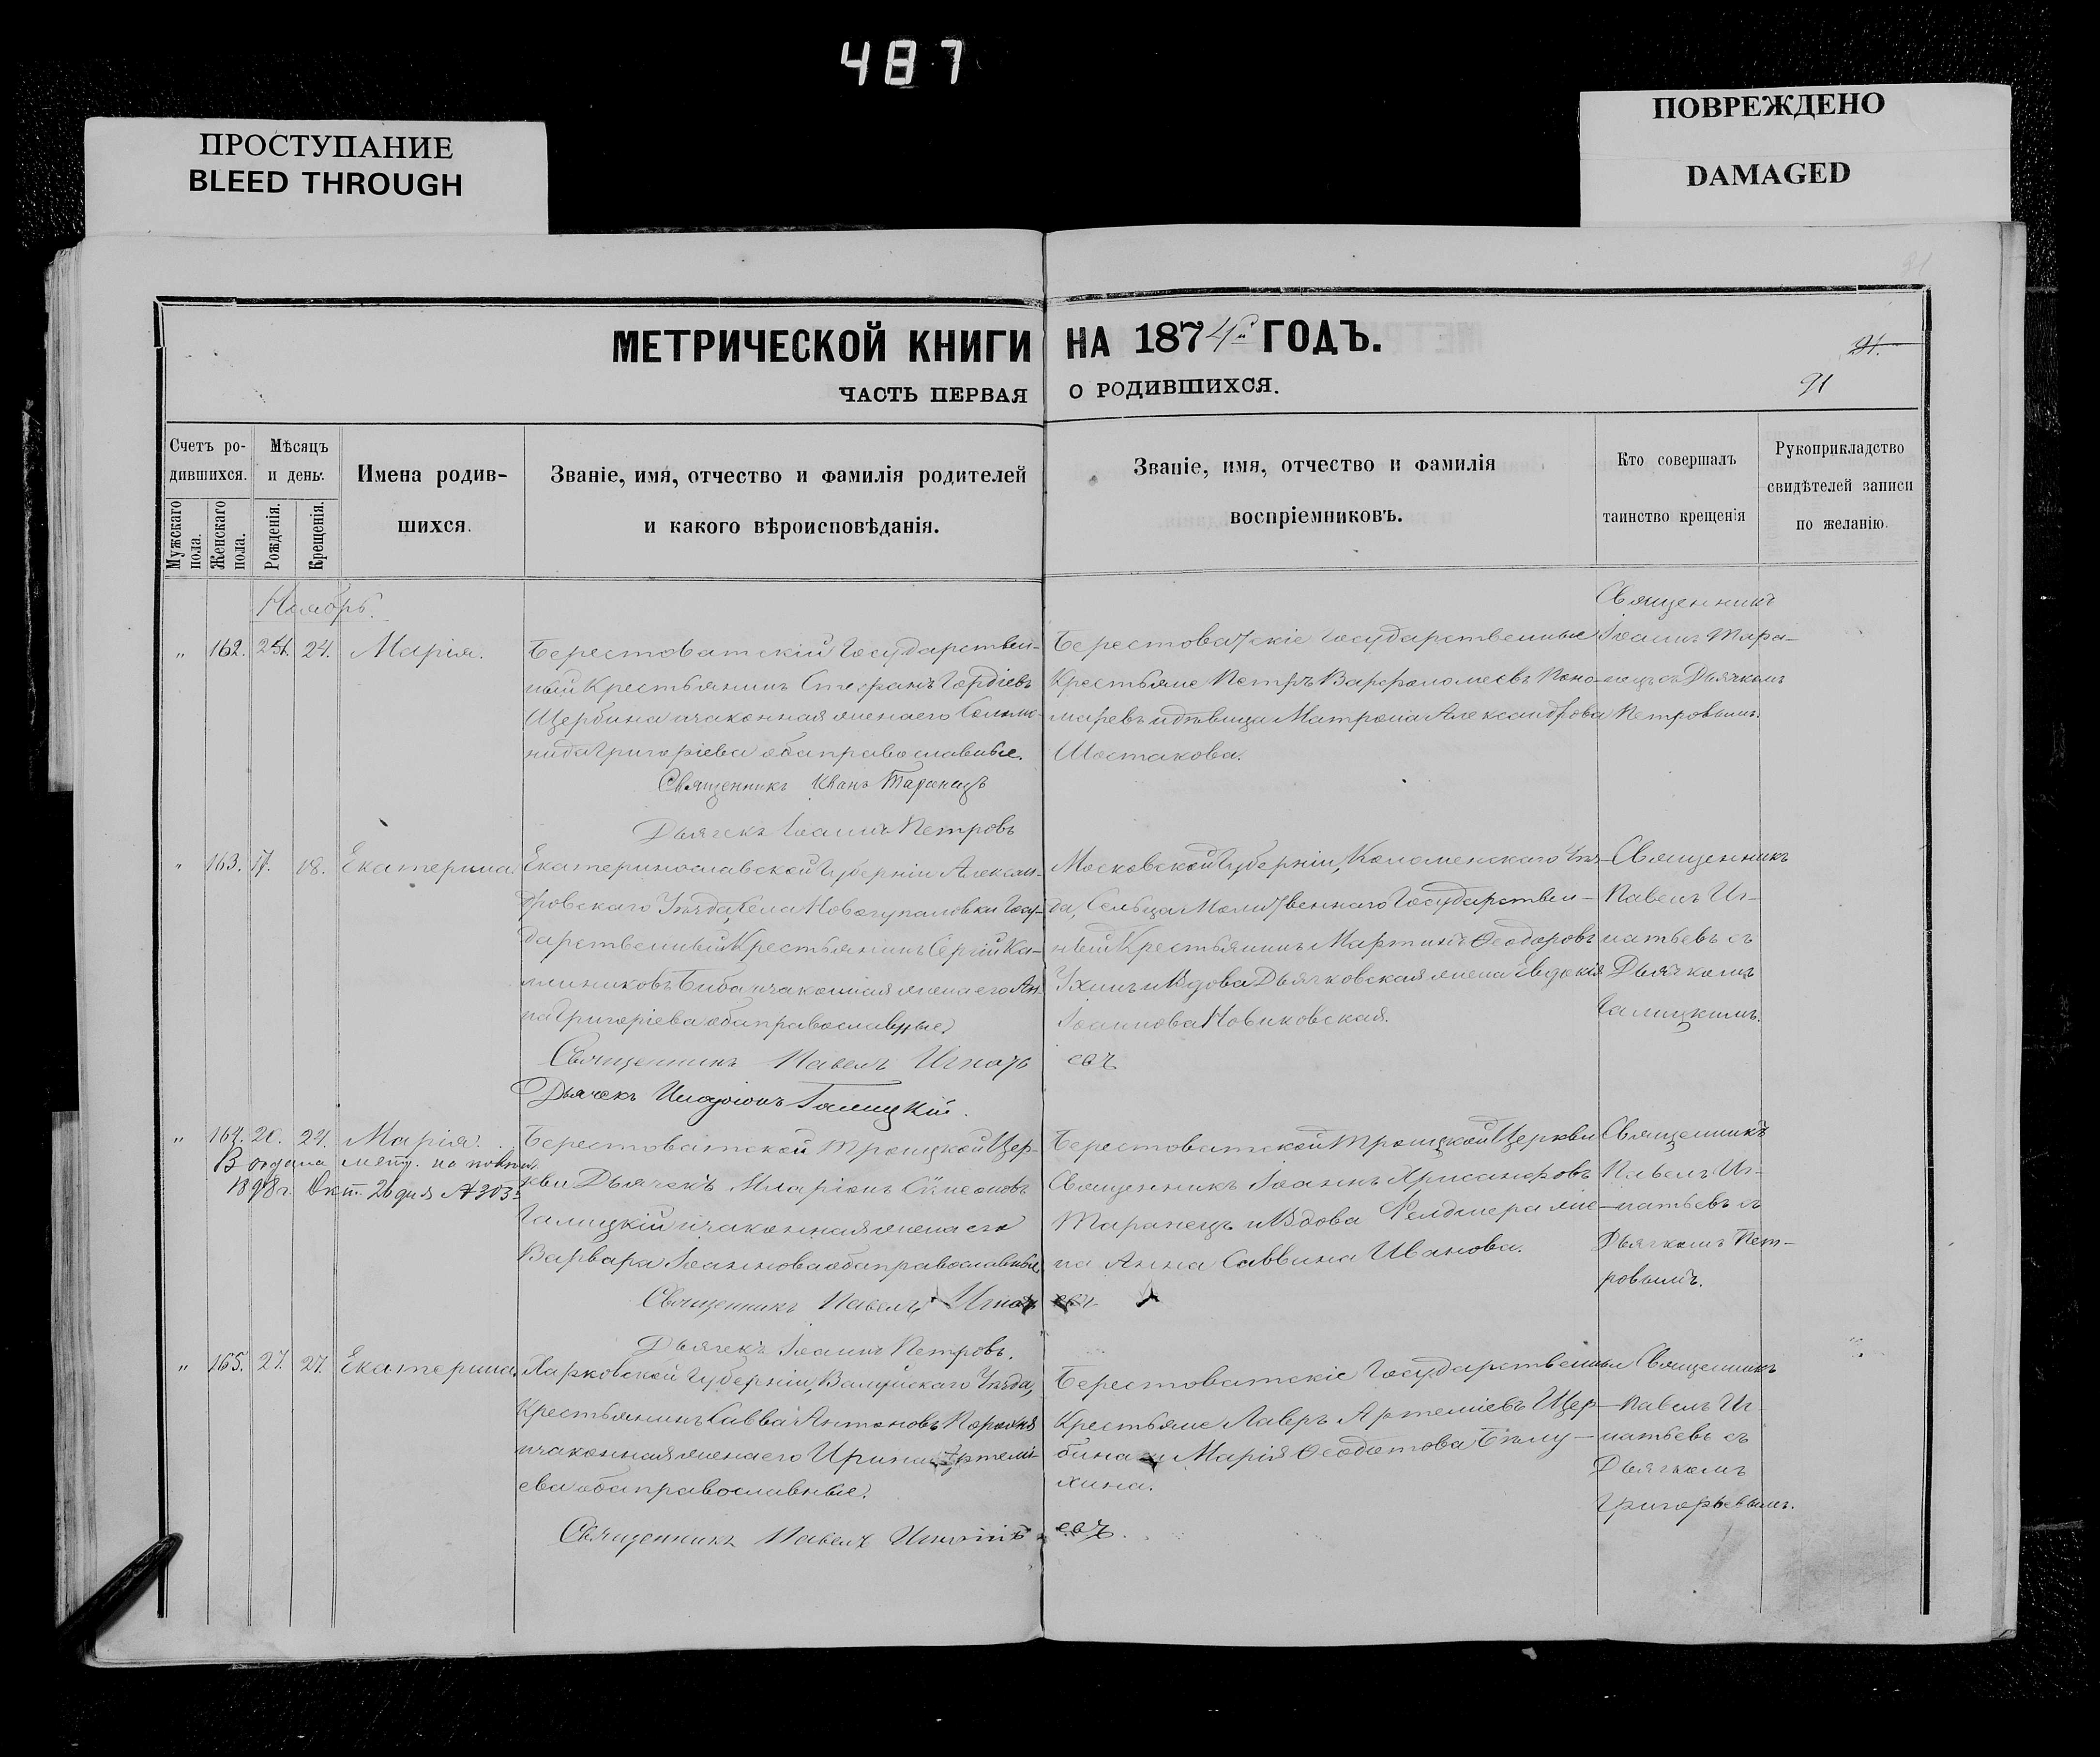 487
ПРОСТУПАНИЕ
BLEED THROUGH
ПОВРЕЖДЕНО
DAMAGED
МЕТРИЧЕСКОЙ КНИГИ НА 1874й ГОДЪ.
91.
91
ЧАСТЬ ПЕРВАЯ О РОДИВШИХСЯ.
Счетъ ро-
дившихся.
Мужскаго пола.
Женскаго пола.
Мѣсяцъ
и день.
Рожденія.
Крещенія.
Имена родив-
шихся.
Званіе, имя, отчество и фамилія родителей
и какого вѣроисповѣданія.
Званіе, имя, отчество и фамилія
воспріемниковъ.
Кто совершалъ
таинство крещенія
Рукоприкладство
свидѣтелей записи
по желанію.
Ноябрь.
„ 162. 24. Марія.
Берестоватскій Государствен-
ный Крестьянинъ Стефанъ Гордіевъ
Щербина и законная жена его Соломо-
нида Григоріева оба православные.
Священникъ Иванъ Таранецъ
Дьячекъ Іоаннъ Петровъ
Берестоватскіе Государственные
Крестьяне Петръ Варфоломеевъ Поно-
маревъ и дѣвица Матрона Александрова
Шостакова.
Священникъ
Іоаннъ Тара-
нецъ съ Дьячкомъ
Петровымъ.
„ 163. 17. 18. Екатерина.
Екатеринославской Губерніи Алексан-
дровскаго Уѣзда, Села Новогупаловки Госу-
дарственный Крестьянинъ Сергій Ка-
линиковъ Биба и законная жена его Ан-
на Григоріева оба православные.
Священникъ Павелъ Игнатьевъ
Дьячекъ Иларіонъ Галицкій.
Московской Губерніи, Коломенскаго Уѣз-
да, Сельца Государствен-
ный Крестьянинъ Мартинъ Ѳеодоровъ
и Вдова Дьячковская жена Евдокія
Іоаннова Новиковская.
Священникъ
Павелъ Иг-
натьевъ съ
Дьячкомъ
Галицкимъ.
„ 164. 20. 24. Марія.
1898 г. Окт. 26 дня № 303
Берестоватской Троицкой Цер-
кви Дьячекъ Иларіонъ Сѵмеоновъ
Галицкій и законная жена его
Варвара Іоаннова оба православные
Священникъ Павелъ Игнатьевъ
Дьячекъ Іоаннъ Петровъ.
Берестоватской Троицкой Церкви
Священникъ Іоаннъ Хрисанфовъ
Таранецъ и Вдова Фелдшера же-
на Анна Саввина Иванова.
Священникъ
Павелъ Иг-
натьевъ съ
Дьячкомъ Пет-
ровымъ.
„ 165. 27. 27. Екатерина.
Харковской Губерніи, Валуйскаго Уѣзда,
Крестьянинъ Савва Антоновъ
и законная жена его Ирина Артемі-
ева оба православные.
Священникъ Павелъ Игнатьевъ.
Берестоватскіе Государственные
Крестьяне Лавръ Артеміевъ Щер-
бина и Марія Ѳеодотова Бѣлу-
хина.
Священникъ
Павелъ Иг-
натьевъ съ
Дьячкомъ
Григорьевымъ.